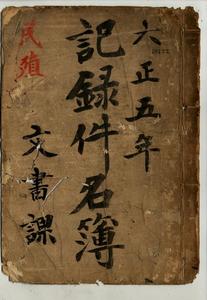 大正五年
記録件名簿
文書課
民殖